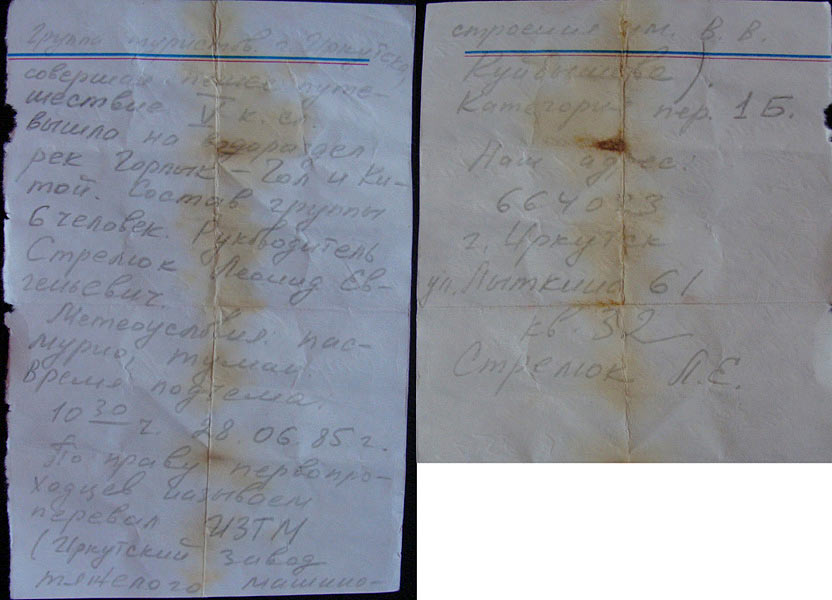 Группа туристов г. Иркутска,
совершая пешее путе-
шествие V к. сл.
вышла на водораздел
рек Горлык-Гол и Ки-
той. Состав группы
6 человек. Руководитель
Стрелюк Леонид Ев-
геньевич.
Метеоусловия: пас-
мурно, туман.
Время подъема:
10 30 ч. 28.06.85 г.
По праву первопро-
ходцев называем
перевал ИЗТМ
(Иркутский завод
тяжелого машино-
строения им. В. В.
Куйбышева).
Категория пер. 1Б.
Наш адрес:
664033
г. Иркутск
ул. Лыткина 61
кв. 32
Стрелюк Л.Е.